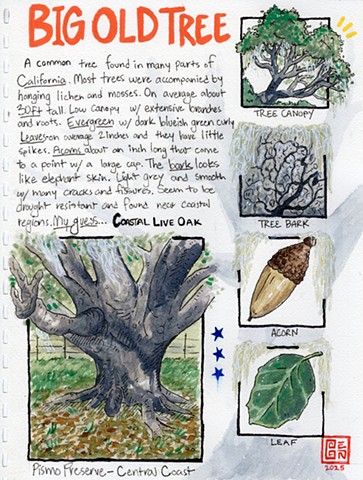 BIG OLD TREE
A common tree found in many parts of
California. Most trees were accompanied by
hanging lichen and mosses. On average about
30ft tall. Low canopy w/ extensive branches
and roots. Evergreen w/ dark blueish green curly
Leaves on average 2 inches and they have little
spikes. Acorns about an inch long that come
to a point w/ a large cap. The bark looks
like elephant skin. Light grey and smooth
w/ many cracks and fissures. Seem to be
drought resistant and found near coastal
regions. My guess... COASTAL LIVE OAK
TREE CANOPY
TREE BARK
ACORN
LEAF
Pismo Preserve - Central Coast
2025